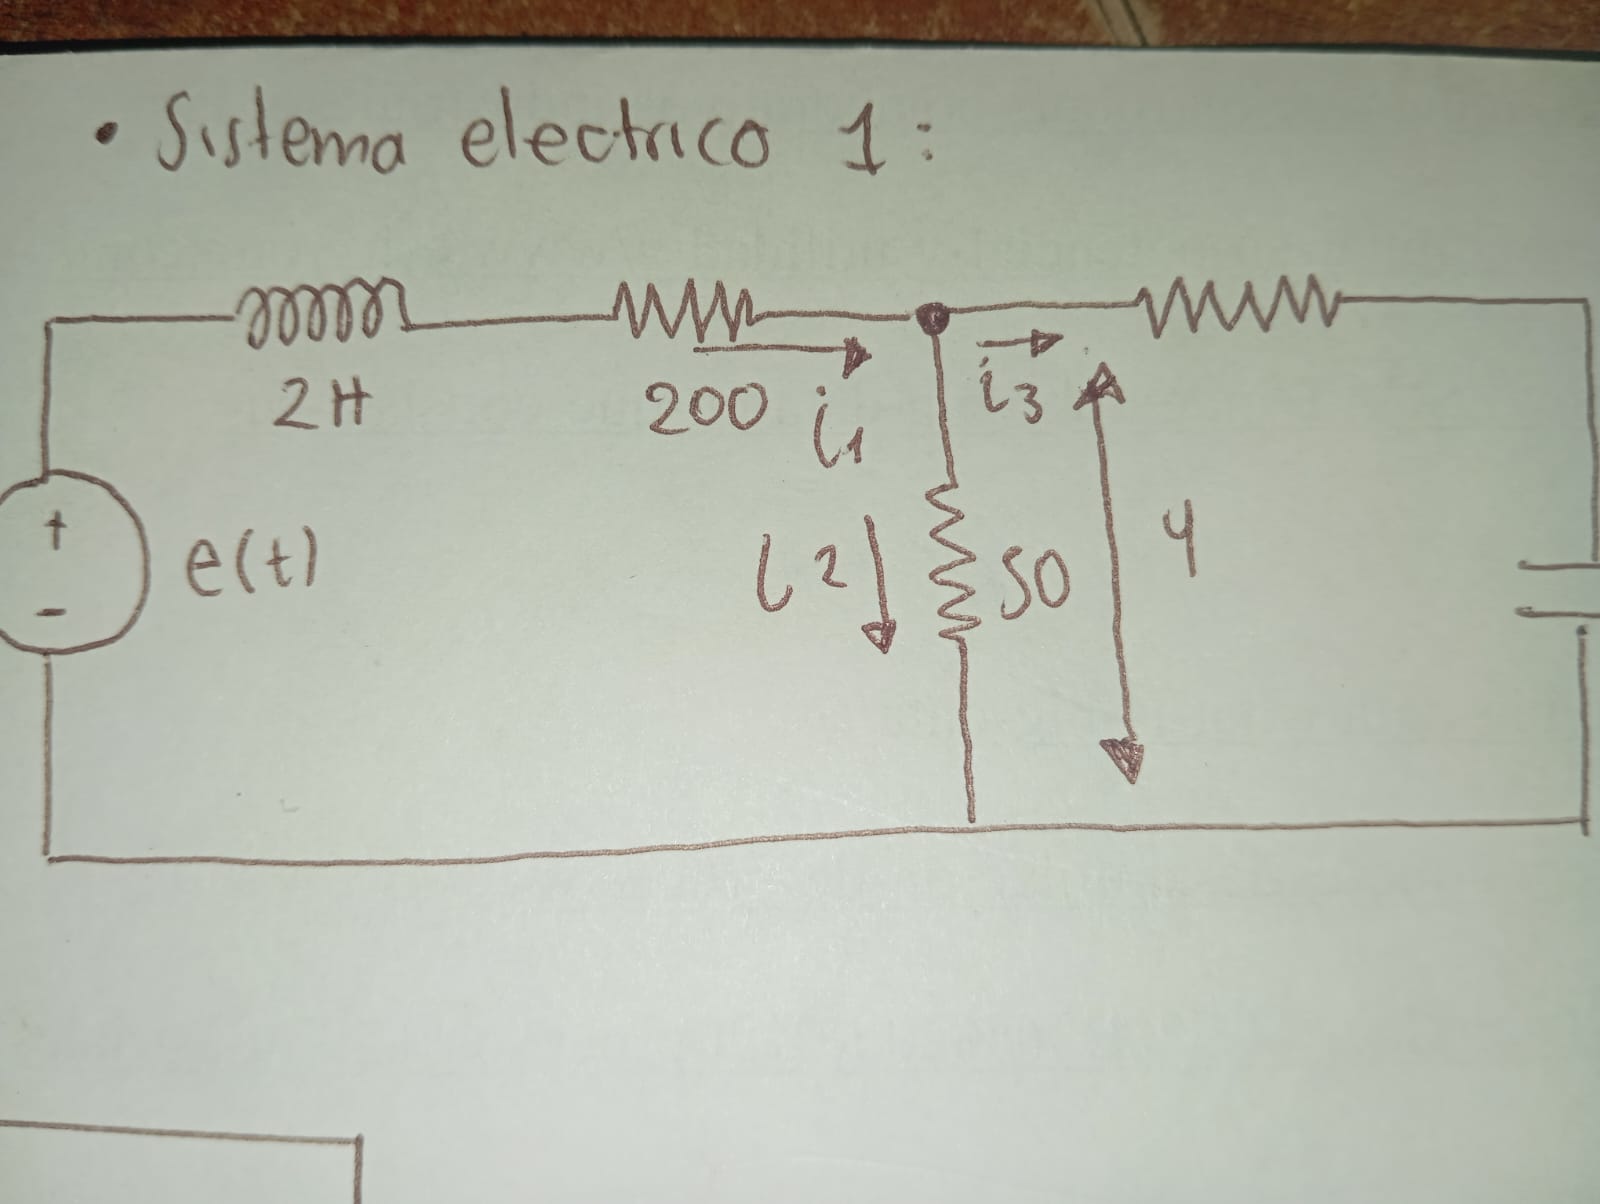 • Sistema electrico 1:
2H
200
i1
i3
+
-
e(t)
i2
50
y